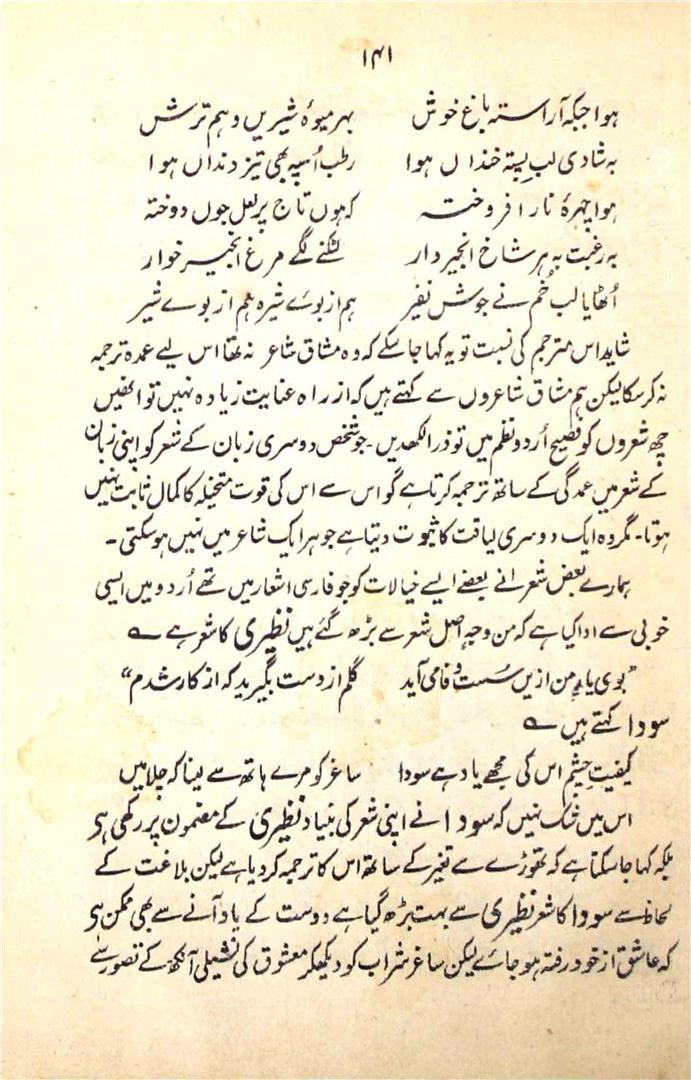 ۱۴۱
ہوا جبکہ آراستہ باغ خوش بہر میوۂ شیریں و ہم ترش
بہ شادی لب پستہ خنداں ہوا رطب اُسپہ بھی تیز دنداں ہوا
ہوا چہرۂ نار افروختہ کہ ہوں تاج پر لعل جوں دوختہ
بہ رغبت بہ ہر شاخ انجیردار لٹکنے لگے مرغ انجیر خوار
اُٹھایا لب خُم نے جوش نفیر ہم از بوے شیرہ ہم از بوے شیر
شاید اس مترجم کی نسبت تو یہ کہا جا سکے کہ وہ مشاق شاعر نہ تھا اس لیے عمدہ ترجمہ
نہ کر سکا لیکن ہم مشاق شاعروں سے کہتے ہیں کہ از راہ عنایت زیادہ نہیں تو انھیں
چھ شعروں کو فصیح اُردو نظم میں تو ذرا لکھدیں۔ جو شخص دوسری زبان کے شعر کو اپنی زبان
کے شعر میں عمدگی کے ساتھ ترجمہ کرتا ہے گو اس سے اس کی قوت متخیلہ کا کمال ثابت نہیں
ہوتا۔ مگر وہ ایک دوسری لیاقت کا ثبوت دیتا ہے جو ہر ایک شاعر میں نہیں ہو سکتی۔
ہمارے بعض شعرا نے بعضے ایسے خیالات کو جو فارسی اشعار میں تھے اُردو میں ایسی
خوبی سے ادا کیا ہے کہ من وجہٍ اصل شعر سے بڑھ گئے ہیں نظیری کا شعر ہے ؎
"بوی یارِ من ازیں سُست وفا می آید گلم از دست بگیرید کہ از کار شدم"
سودا کہتے ہیں ؎
کیفیتِ چشم اس کی مجھے یاد ہے سودا ساغر کو مرے ہاتھ سے لینا کہ چلا میں
اس میں شک نہیں کہ سودا نے اپنی شعر کی بنیاد نظیری کے مضمون پر رکھی ہی
بلکہ کہا جا سکتا ہے کہ تھوڑے سے تغیر کے ساتھ اس کا ترجمہ کر دیا ہے لیکن بلاغت کے
لحاظ سے سودا کا شعر نظیری سے بہت بڑھ گیا ہے دوست کے یاد آنے سے بھی ممکن ہی
کہ عاشق از خود رفتہ ہو جائے لیکن ساغر شراب کو دیکھکر معشوق کی نشیلی آنکھ کے تصور سے